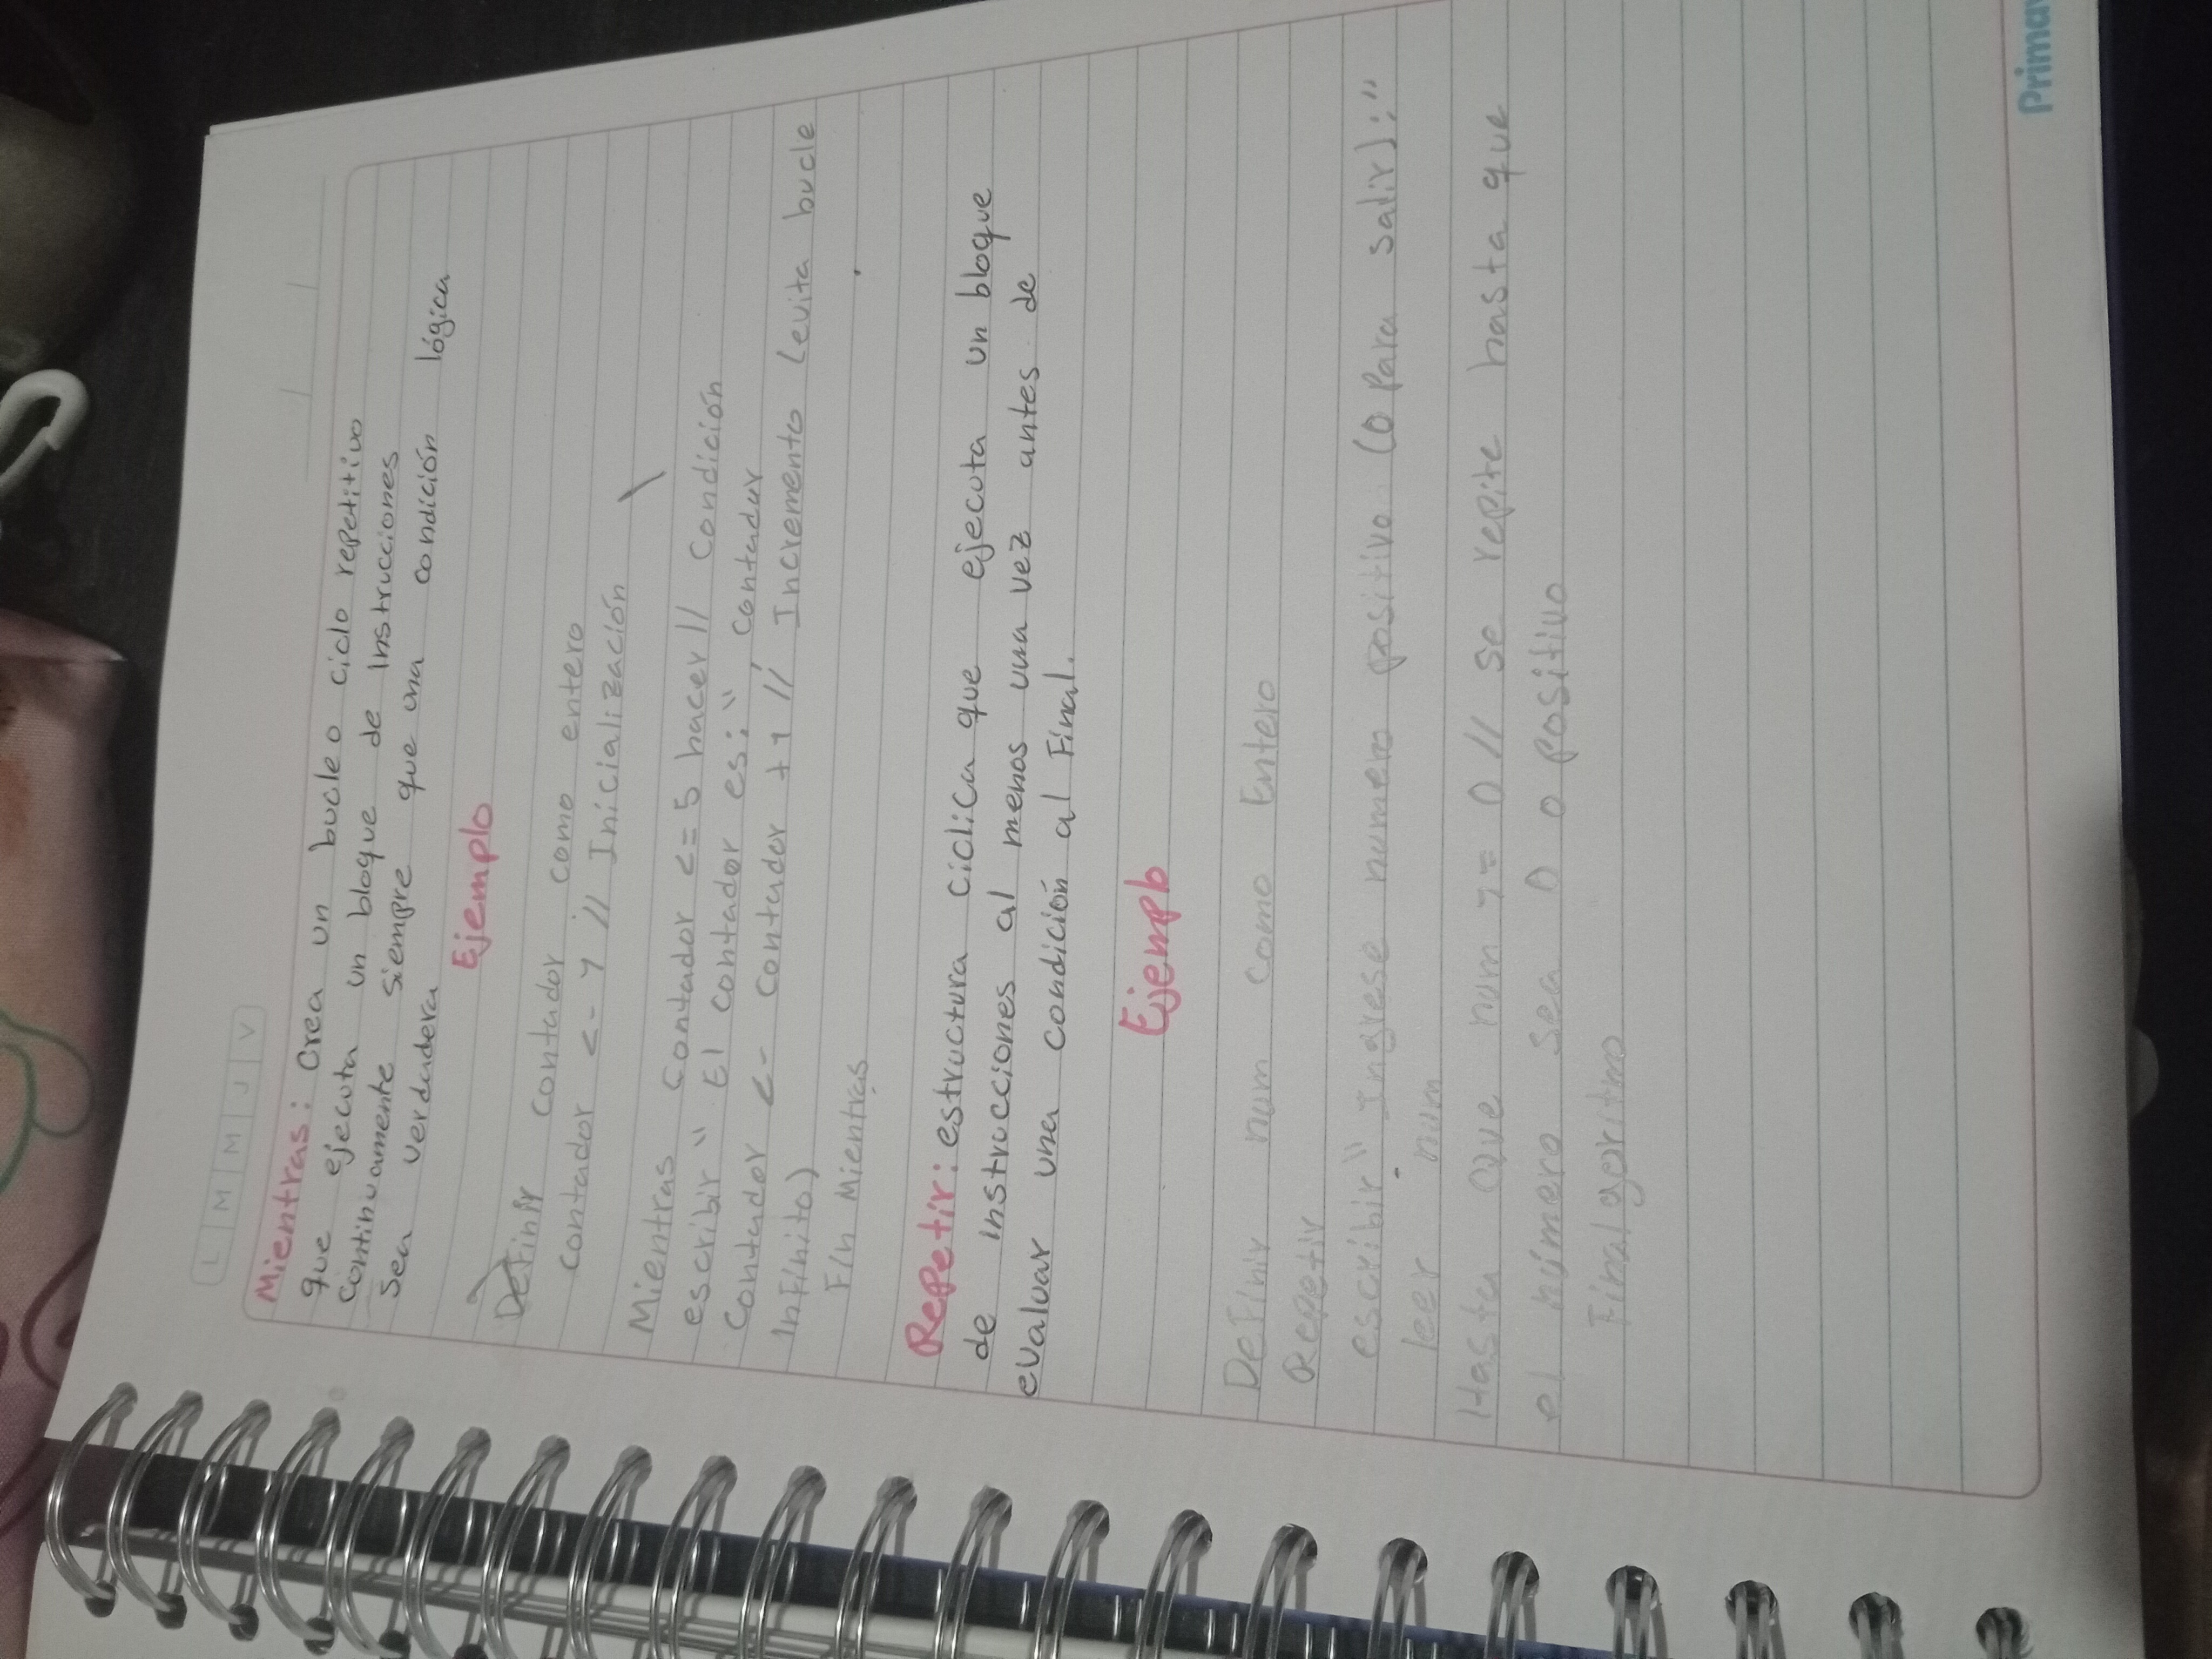 L M M J V
Mientras: Crea un bucle o ciclo repetitivo
que ejecuta un bloque de instrucciones
continuamente siempre que una condición lógica
sea verdadera
Ejemplo
Definir contador como entero
contador <- 1 // Inicialización
Mientras contador <= 5 hacer // condición
escribir " El contador es: ", contador
contador <- contador +1 // Incremento (evita bucle
infinito)
Fin Mientras
Repetir: estructura ciclica que ejecuta un bloque
de instrucciones al menos una vez antes de
evaluar una condición al final.
Ejemplo
Definir num como Entero
Repetir
escribir " Ingrese numero positivo (0 para salir):"
leer num
Hasta Que num >= 0 // se repite hasta que
el número sea 0 o positivo
Finalgoritmo